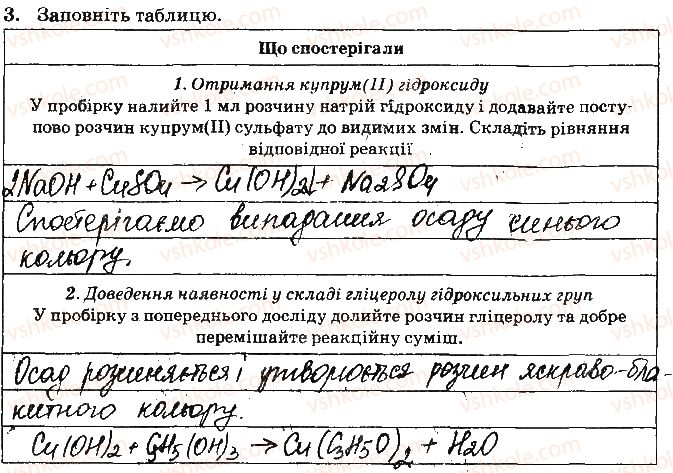 3. Заповніть таблицю.
Що спостерігали
1. Отримання купрум(ІІ) гідроксиду
У пробірку налийте 1 мл розчину натрій гідроксиду і додавайте посту-
пово розчин купрум(ІІ) сульфату до видимих змін. Складіть рівняння
відповідної реакції
2NaOH + CuSO4 → Cu(OH)2↓ + Na2SO4
Спостерігаємо випадання осаду синього
кольору.
2. Доведення наявності у складі гліцеролу гідроксильних груп
У пробірку з попереднього досліду долийте розчин гліцеролу та добре
перемішайте реакційну суміш.
Осад розчиняється і утворюється розчин яскраво-бла-
китного кольору.
Cu(OH)2 + C3H5(OH)3 → Cu(C3H5O)2 + H2O